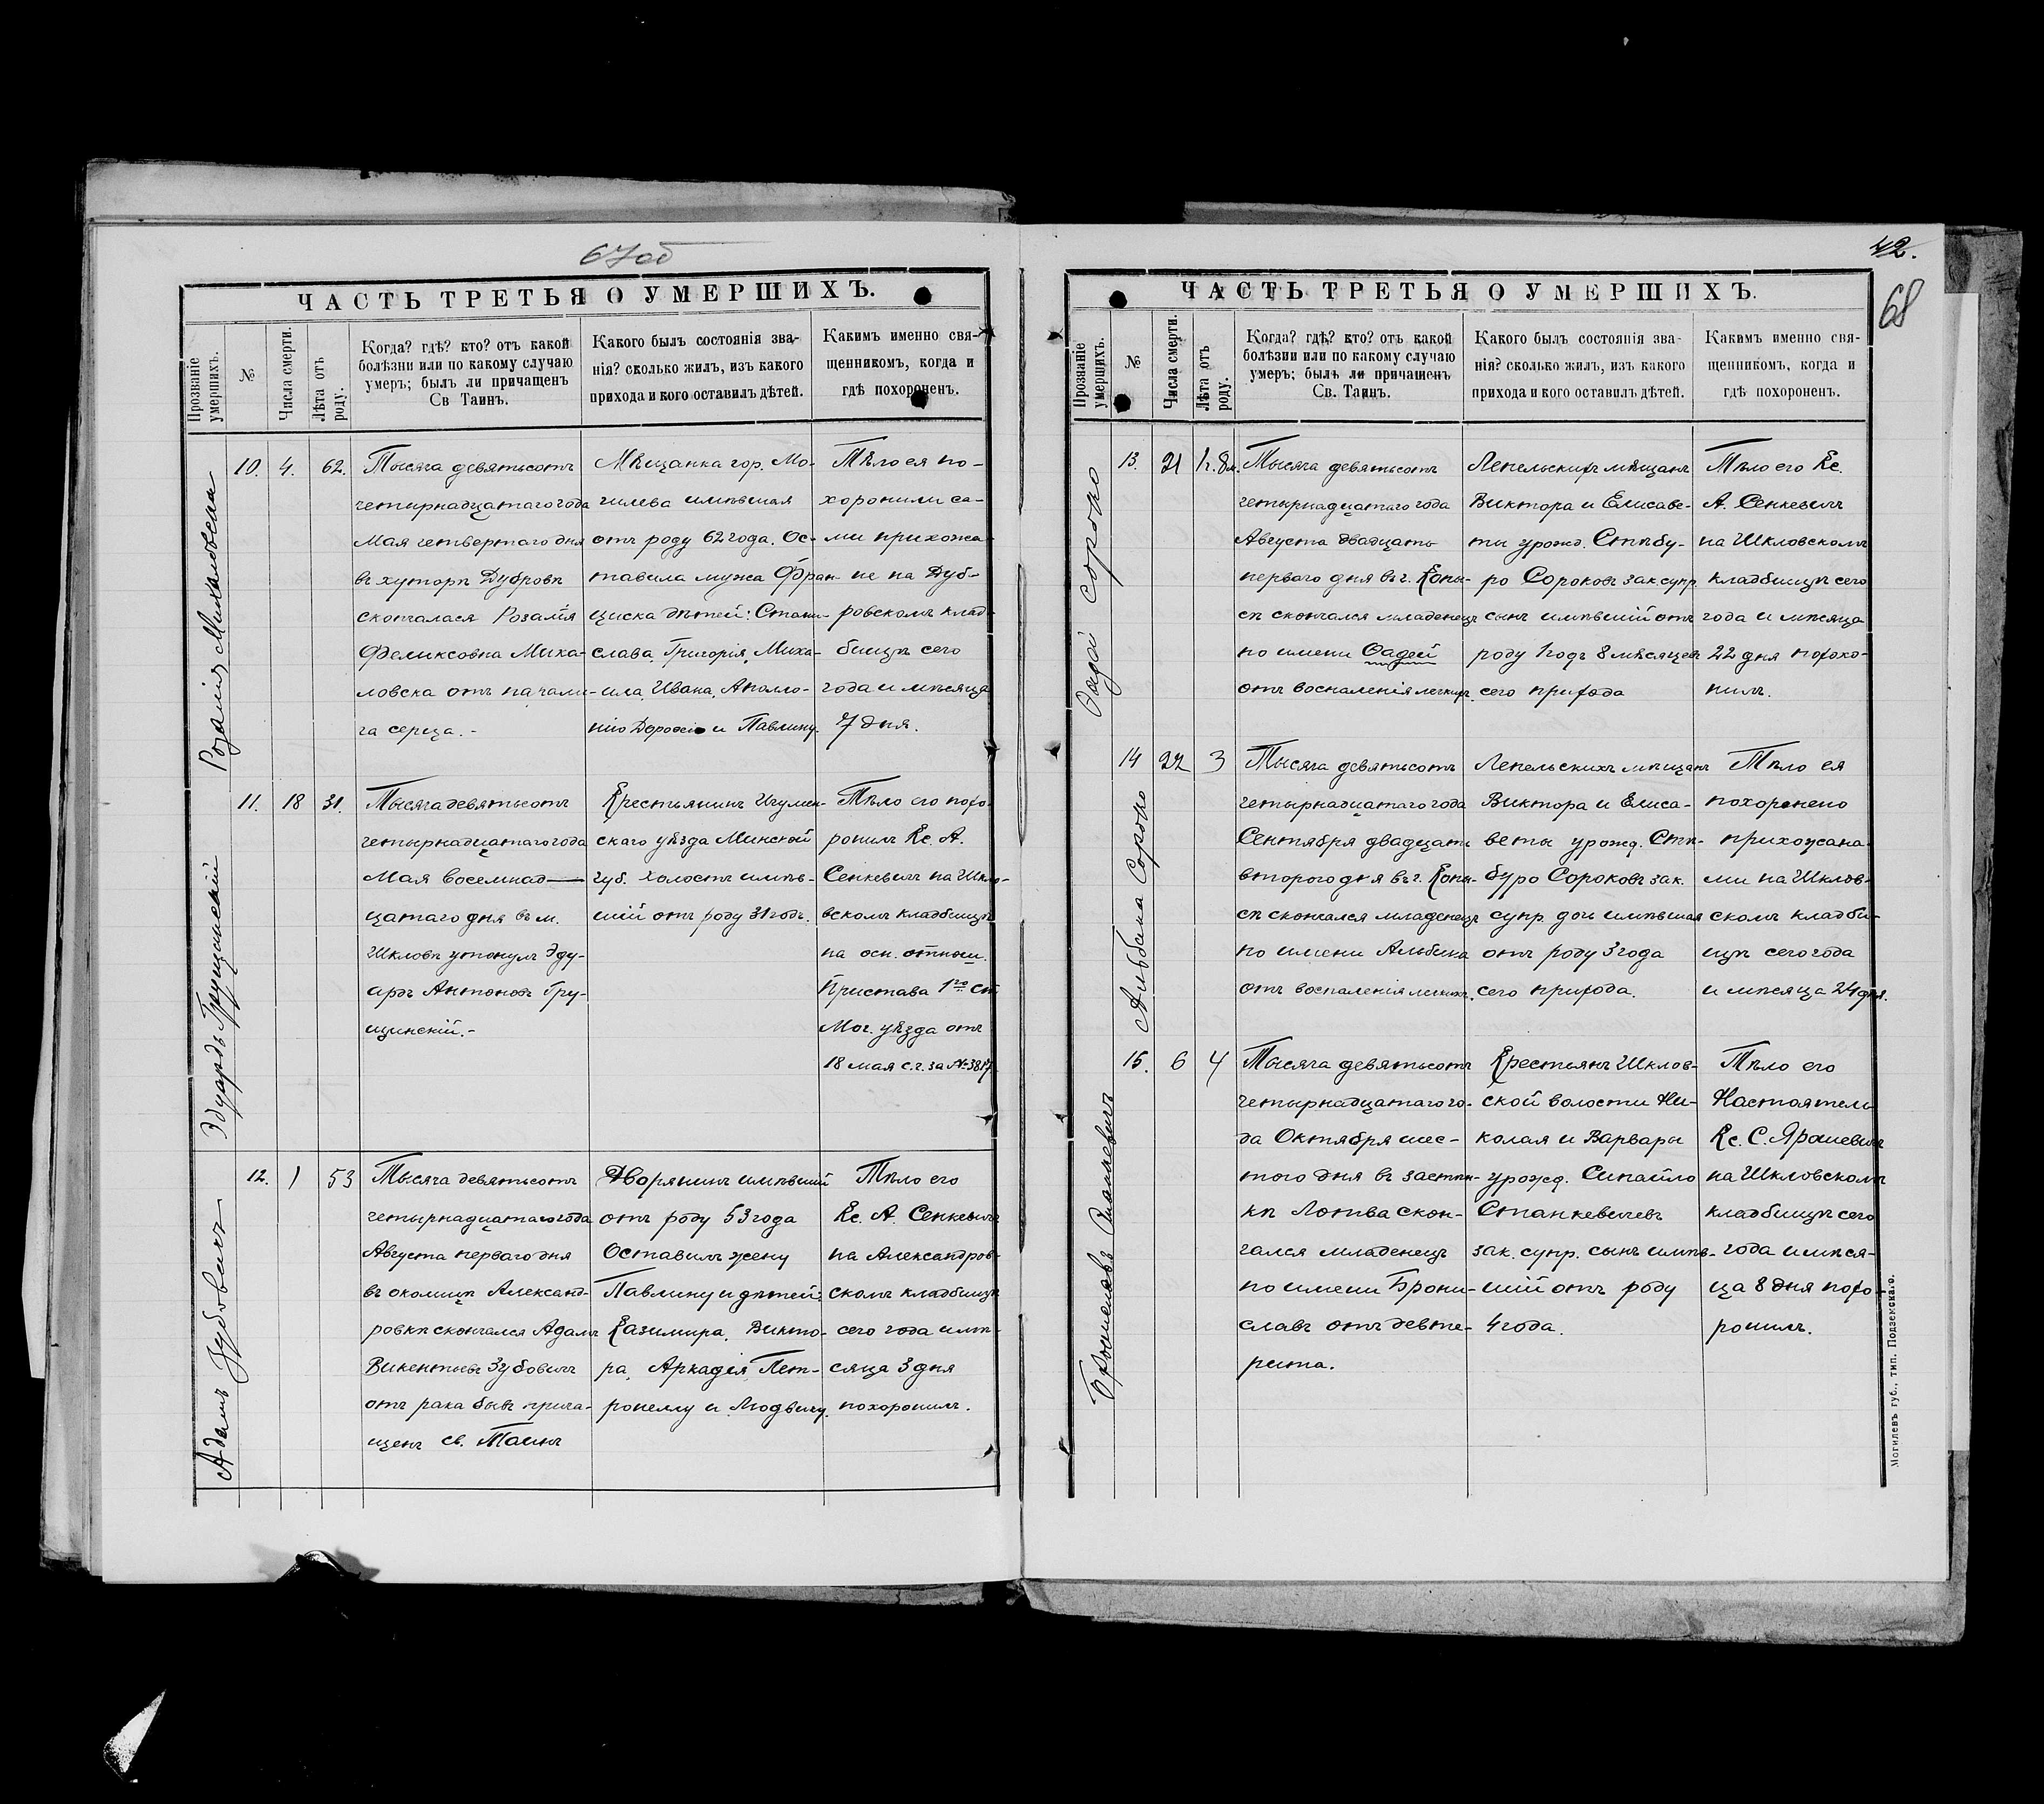 67об
ЧАСТЬ ТРЕТЬЯ О УМЕРШИХЪ.
Прозваніе умершихъ.
№
Числа смерти.
Лѣта отъ роду.
Когда? гдѣ? кто? отъ какой
болѣзни или по какому случаю
умеръ; былъ ли причащенъ
Св Таинъ.
Какого былъ состоянія зва-
нія? сколько жилъ, изъ какого
прихода и кого оставилъ дѣтей.
Какимъ именно свя-
щенникомъ, когда и
гдѣ похороненъ.
Розалія Михаловска
10.
4.
62.
Тысяча девятьсотъ
четырнадцатаго года
Мая четвертаго дня
въ хуторѣ Дубровѣ
скончалася Розалія
Феликсовна Миха-
ловска отъ парали-
ча серца.-
Мѣщанка гор. Мо-
гилева имѣвшая
отъ роду 62 года. Ос-
тавила мужа Фран-
циска дѣтей: Стани-
слава, Григорія, Миха-
ила, Ивана, Аполло-
нію Доросію и Павлину.
Тѣло ея по-
хоронили са-
ми прихожа-
не на Дуб-
ровскомъ клад-
бищѣ сего
года и мѣсяца
7 дня.
Эдуардъ Грущинскій
11.
18
31.
Тысяча девятьсотъ
четырнадцатаго года
Мая восемнад-
цатаго дня въ м.
Шкловѣ утонулъ Эду-
ардъ Антоновъ Гру-
щинскій.-
Крестьянинъ Игумен-
скаго уѣзда Минской
губ. холостъ имѣв-
шій отъ роду 31 годъ.
Тѣло его похо-
ронилъ Кс. А.
Сенкевичъ на Шкло-
вскомъ кладбищѣ
на осн. отнош.
Пристава 1го ст
Мог. уѣзда отъ
18 мая с.г. за № 3817.
Адамъ Зубовичъ
12.
1
53
Тысяча девятьсотъ
четырнадцатаго года
Августа перваго дня
въ околицѣ Александ-
ровкѣ скончался Адамъ
Викентьевъ Зубовичъ
отъ рака бывъ прича-
щенъ св. Таинъ
Дворянинъ имѣвшій
отъ роду 53 года
Оставилъ жену
Павлину и дѣтей:
Казимира, Викто-
ра, Аркадія, Пет-
ронеллу и Людвигу.
Тѣло его
Кс. А. Сенкевичъ
на Александров-
скомъ кладбищѣ
сего года и мѣ-
сяца 3 дня
похоронилъ.
42.
68
ЧАСТЬ ТРЕТЬЯ О УМЕРШИХЪ.
Прозваніе умершихъ.
№
Числа смерти.
Лѣта отъ роду.
Когда? гдѣ? кто? отъ какой
болѣзни или по какому случаю
умеръ; былъ ли причащенъ
Св. Таинъ.
Какого былъ состоянія зва-
нія? сколько жилъ, изъ какого
прихода и кого оставилъ дѣтей.
Какимъ именно свя-
щенникомъ, когда и
гдѣ похороненъ.
Ѳадѣй Сороко
13.
21
1г. 8м.
Тысяча девятьсотъ
четырнадцатаго года
Августа двадцать
перваго дня въ г. Копы-
сѣ скончался младенецъ
по имени Ѳадей
отъ воспаленія легкихъ.
Лепельскихъ мѣщанъ
Виктора и Елисаве-
ты урожд. Стѣбу-
ро Сороковъ зак. супр.
сынъ имѣвшій отъ
роду 1 годъ 8 мѣсяцевъ
сего прихода
Тѣло его Кс.
А. Сенкевичъ
на Шкловскомъ
кладбищѣ сего
года и мѣсяца
22 дня похоро-
нилъ.
Альбина Сороко
14
22
3
Тысяча девятьсотъ
четырнадцатаго года
Сентября двадцать
второго дня въ г. Копы-
сѣ скончался младенецъ
по имени Альбина
отъ воспаленія легкихъ.
Лепельскихъ мѣщанъ
Виктора и Елиса-
веты урожд. Стѣ-
буро Сороковъ зак.
супр. дочь имѣвшая
отъ роду 3 года
сего прихода.
Тѣло ея
похоронено
прихожана-
ми на Шклов-
скомъ кладби-
щѣ сего года
и мѣсяца 24 дня.
Брониславъ Станкевичъ
15.
6
4
Тысяча девятьсотъ
четырнадцатаго го-
да Октября шес-
того дня въ застѣн-
кѣ Лотва скон-
чался младенецъ
по имени Брони-
славъ отъ девте-
рита.
Крестьянъ Шклов-
ской волости Ни-
колая и Варвары
урожд. Сипайло
Станкевичевъ
зак. супр. сынъ имѣв-
шій отъ роду
4 года.
Тѣло его
Настоятель
Кс. С. Ярошевичъ
на Шкловскомъ
кладбищѣ сего
года и мѣся-
ца 8 дня похо-
ронилъ.
Могилевъ губ., тип. Подземскаго.